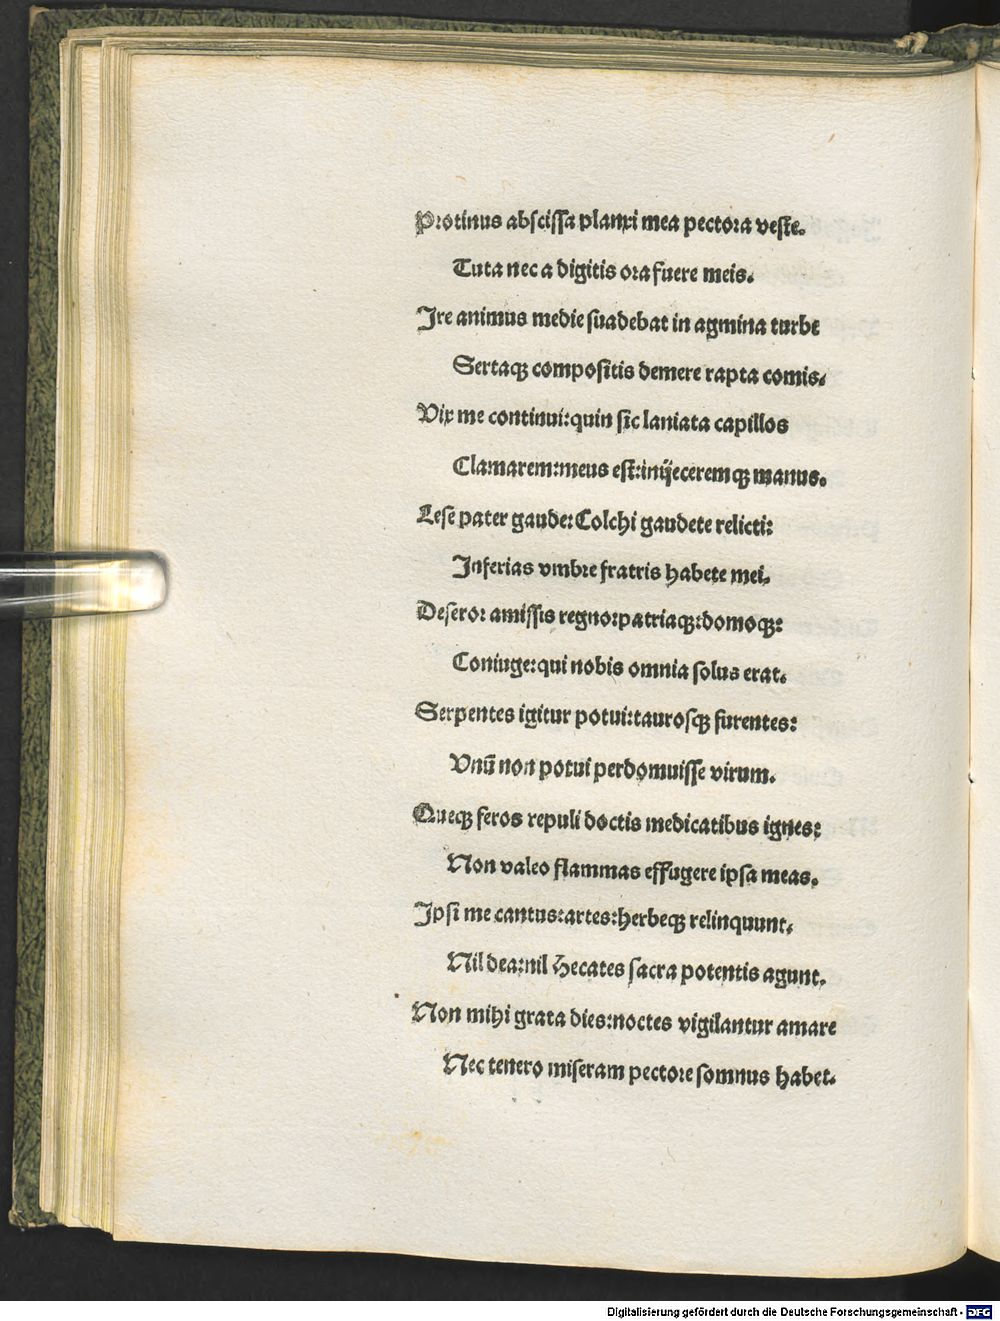 Protinus abscissa planxi mea pectora veste.
Tuta nec a digitis ora fuere meis.
Ire animus medie suadebat in agmina turbe
Sertaqꝫ compositis demere rapta comis.
Vix me continui:quin sic laniata capillos
Clamarem:meus est:inijceremqꝫ manus.
Lese pater gaude:Colchi gaudete relicti:
Inferias vmbre fratris habete mei.
Deseror amissis regno:patriaqꝫ:domoqꝫ:
Coniuge:qui nobis omnia solus erat.
Serpentes igitur potui:taurosqꝫ furentes:
Vnū non potui perdomuisse virum.
Queqꝫ feros repuli doctis medicatibus ignes:
Non valeo flammas effugere ipsa meas.
Ipsi me cantus:artes:herbeqꝫ relinquunt.
Nil dea:nil Hecates sacra potentis agunt.
Non mihi grata dies:noctes vigilantur amare
Nec tenero miseram pectore somnus habet.
Digitalisierung gefördert durch die Deutsche Forschungsgemeinschaft - DFG